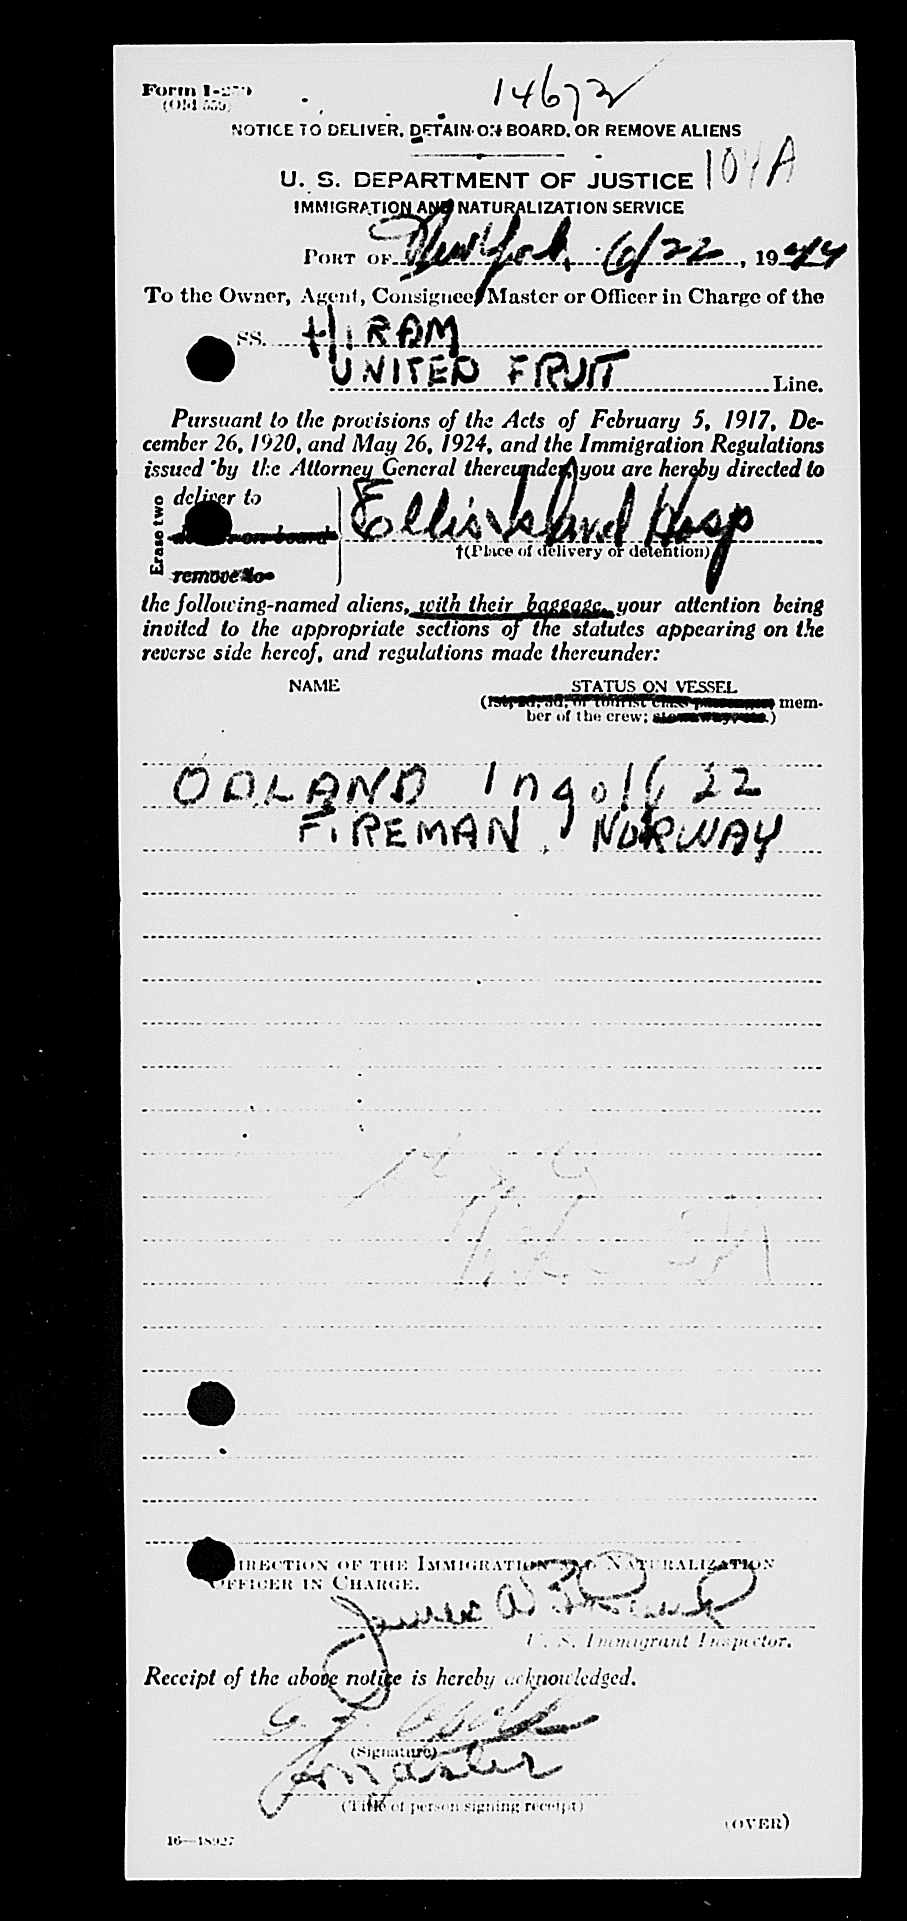 Form I-259
(Old 555)
14673
NOTICE TO DELIVER, DETAIN ON BOARD, OR REMOVE ALIENS
U. S. DEPARTMENT OF JUSTICE 104A
IMMIGRATION AND NATURALIZATION SERVICE
PORT OF New York, 6/22, 1944
To the Owner, Agent, Consignee, Master or Officer in Charge of the
SS. HIRAM
UNITED FRUIT Line.
Pursuant to the provisions of the Acts of February 5, 1917, De-
cember 26, 1920, and May 26, 1924, and the Immigration Regulations
issued by the Attorney General thereunder, you are hereby directed to
Erase two
deliver to
on board
remove to
Ellis Island Hosp
†(Place of delivery or detention)
the following-named aliens, with their baggage, your attention being
invited to the appropriate sections of the statutes appearing on the
reverse side hereof, and regulations made thereunder:
NAME STATUS ON VESSEL
(1st, 2d, 3d, or tourist class passenger mem-
ber of the crew; stowaway, etc.)
ODLAND Ingolf 22
FIREMAN, NORWAY
DIRECTION OF THE IMMIGRATION AND NATURALIZATION
OFFICER IN CHARGE.
James
U. S. Immigrant Inspector.
Receipt of the above notice is hereby acknowledged.
(Signature)
Master
(Title of person signing receipt)
(OVER)
16—18927